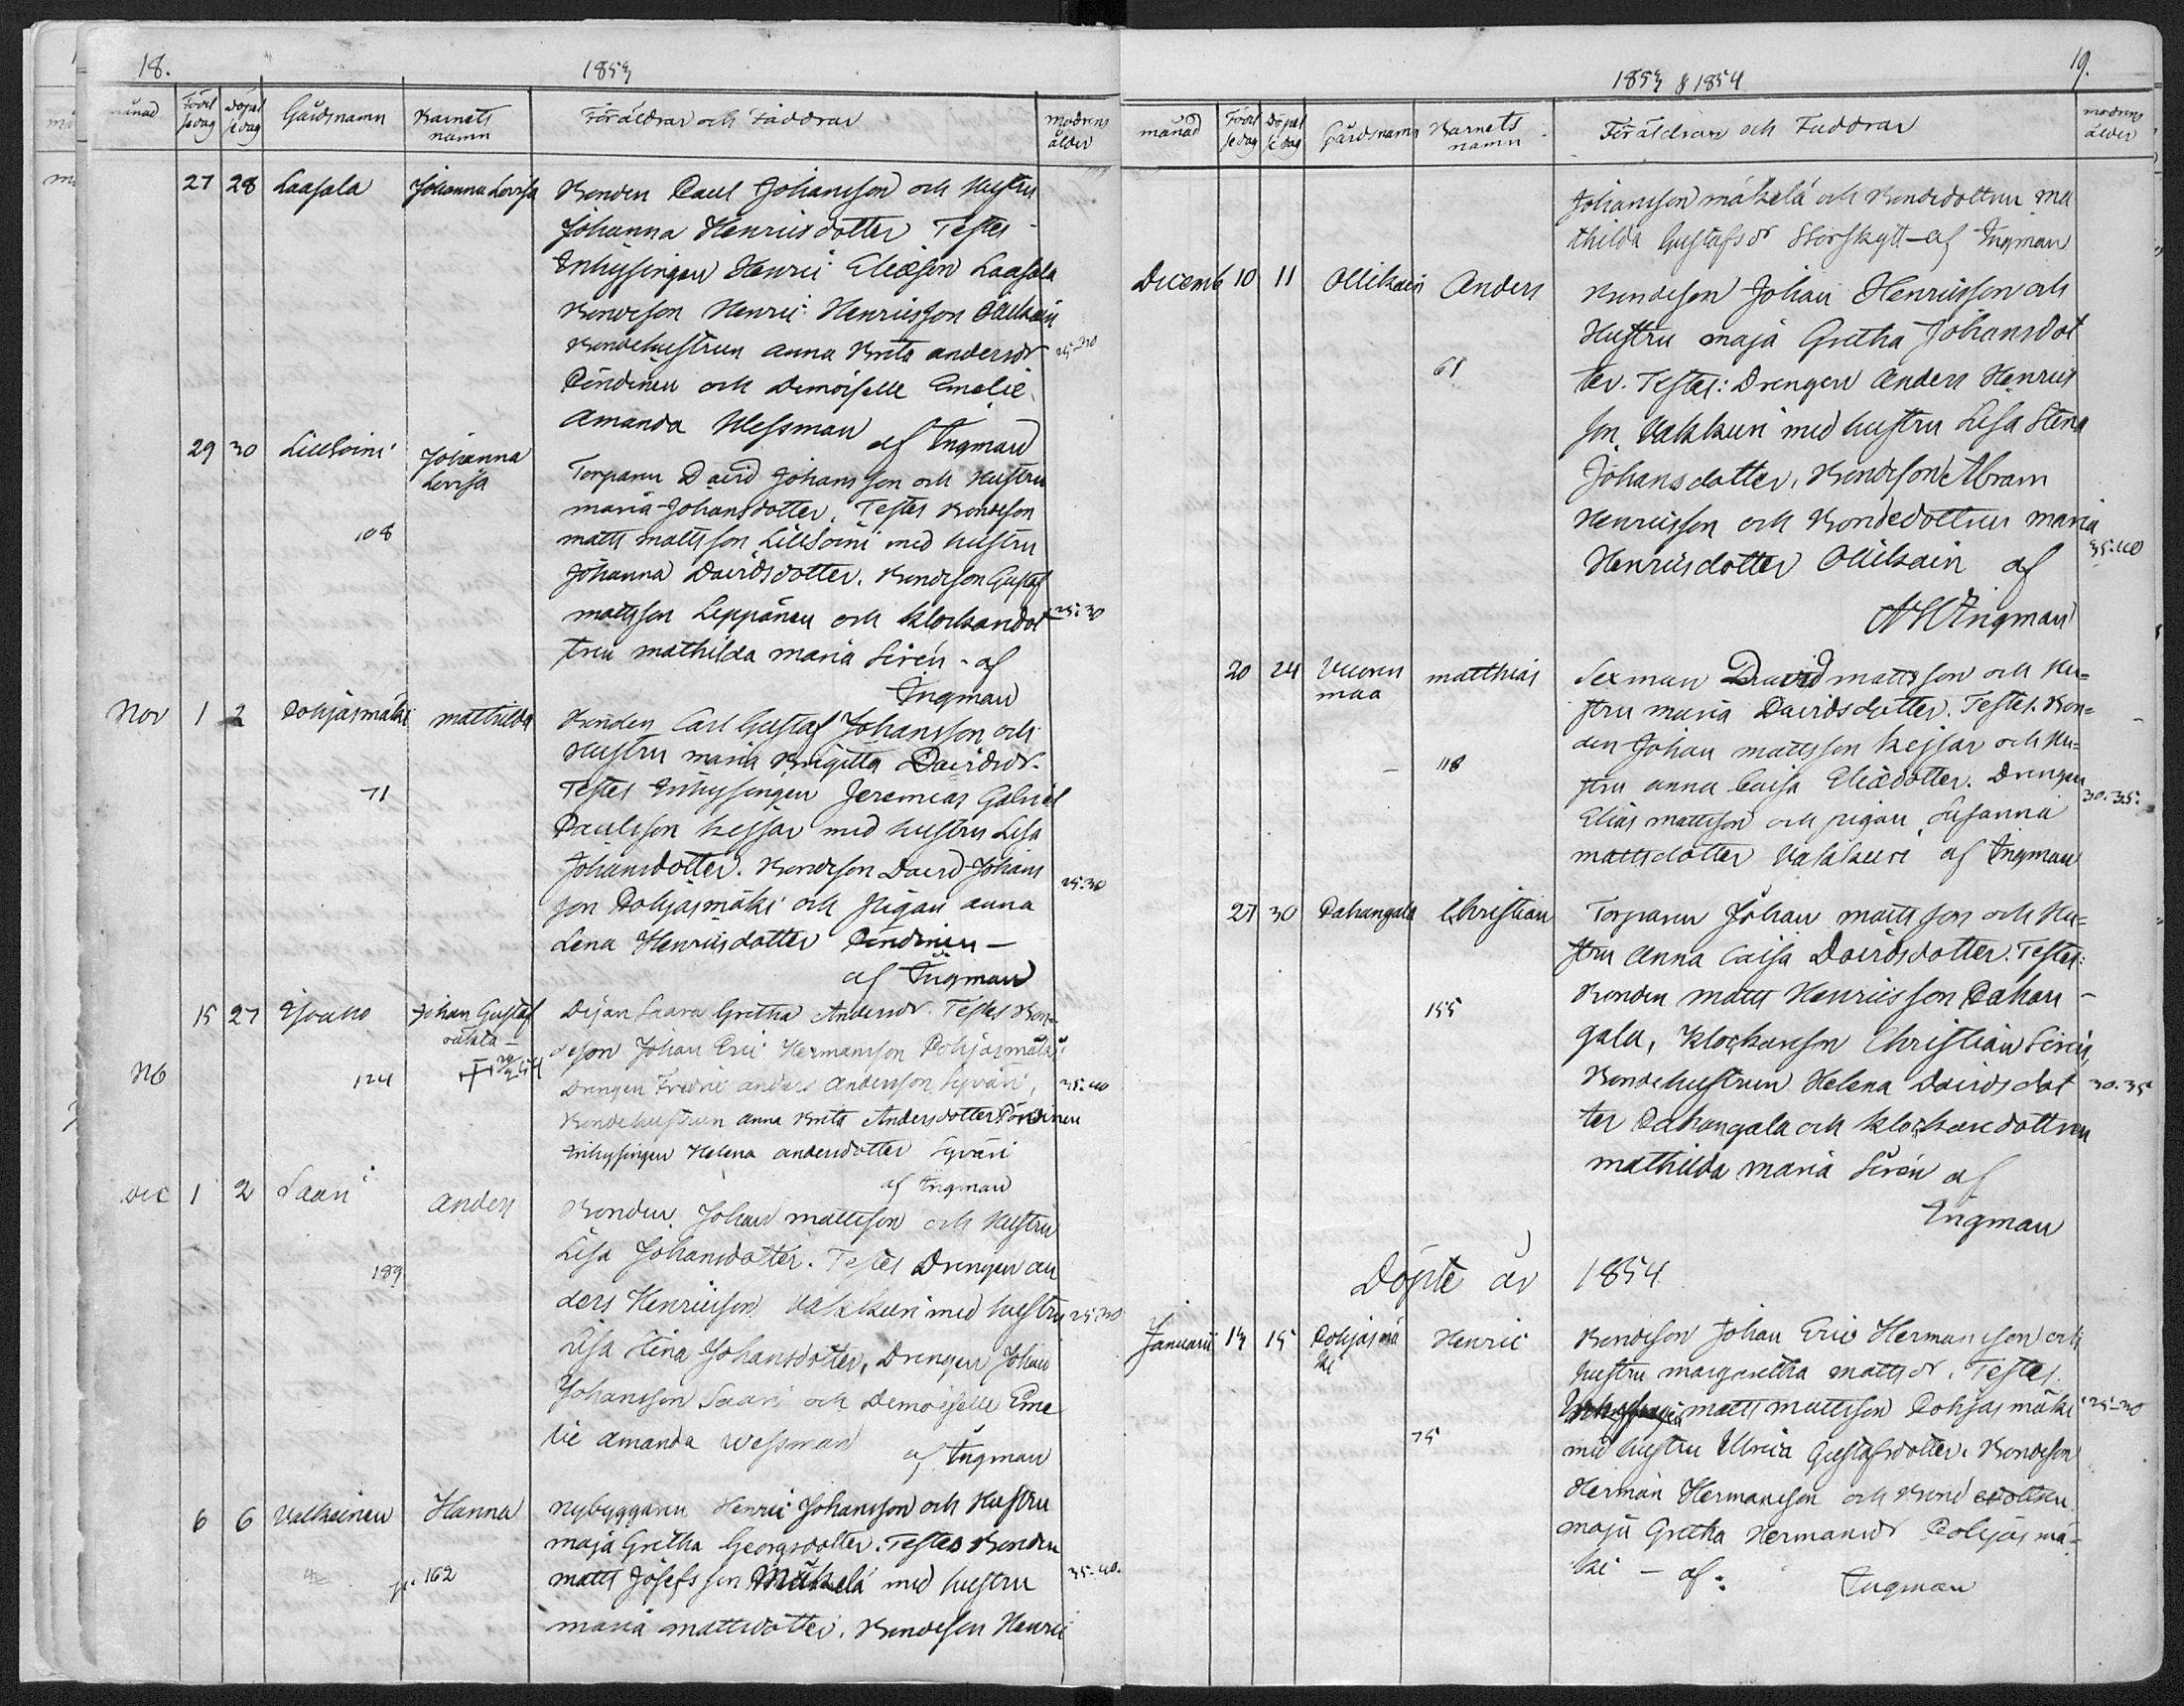 18.
1853
månad
Född se dag
Döpel se dag
Gårdsnamn
Barnets namn
Föräldrar och Faddrar
modrens ålder
27 28 Laasala Johanna Lovisa Bonden Paul Johansson och Hustru
Johanna Henricsdotter Testes
Inhysingen Henric Eliæson Laasala
Bondeson Henric Henricsson Ollikain
Bondehustrun Anna Brita andersdr 25-30
Pöndinen och Demoiselle Emelie
Amanda Wessman af Ingman
29 30 Lillsoini Johanna Lovisa
Torparen David Johansson och Hustru
maria Johansdotter. Testes Bondeson
108 matts mattsson Lillsoini med hustru
Johanna Davidsdotter. Bondeson Gustaf
mattsson Leppänen och klockardot 25:30
tren mathilda maria Sirén - af
Ingman
Nov 1 2 Pohjasmäki mathilda Bonden Carl Gustaf Johansson och
Hustru maria Brigitta Davidsdr.
71 Testes Inhysingen Jeremias Gabriel
Paulsson kejsar med hustru Lisa
Johansdotter. Bondeson David Johans
son Pohjasmäki och Pigan anna 25:30
Lena Henricsdotter Pöndinen —
af Ingman
15 27 Isoaho Johan Gustaf oäkta — Pijan Saara Gretha Andersdr. Testes Bon-
deson Johan Eric Hermansson Pohjasmäki
NB 124 Drengen Fredric anders andersson Syväri, 35:40
Bondehustrun anna Brita Andersdotter Pöndinen
Inhysingen Helena andersdotter Syväri
af Ingman
Dec 1 2 Saari anders Bonden Johan mattsson och Hustru
Lisa Johansdotter. Testes Drengen an
189
ders Henricsson Vakkuri med hustru 25:30
Lisa Stina Johansdotter, Drengen Johan
Johansson Saari och Demoiselle Eme
lie amanda Wessman af Ingman
6 6 Valkeinen Hanna Nybyggaren Henric Johansson och Hustru
maja Gretha Georgsdotter. Testes Bonden
162 matts Josefsson Mäkelä med hustru 35-40.
maria mattsdotter. Bondeson Henric
19.
1853 & 1854
månad
Född se dag
Döpel se dag
Gårdsnamn
Barnets namn
Föräldrar och Faddrar
modrens ålder
Johansson mäkelä och Bondedottren ma
thilda Gustafsdr Storskytt - af Ingman
Decemb 10 11 Ollikain Anders Bondeson Johan Henricsson och
Hustru maja Gretha Johansdot
61 ter. Testes: Drengen Anders Henrics
son Vakkuri med hustru Lisa Stina
Johansdotter, Bondeson Abram
Henricsson och Bondedottren maria
Henricsdotter Ollikain af 35:40
Ingman
20 24 Vuorenmaa matthias Sexman David mattsson och Hu=
stru maria Davidsdotter. Testes. Bon=
den Johan mattsson kejsar och Hu=
118
stru anna Caisa Eliædotter. Drengen 30.35.
Elias mattsson och pigan Susanna
mattsdotter Vakkuri af Ingman
27 30 Pahangala Christian Torparen Johan mattsson och Hu=
stru Anna Caisa Davidsdotter. Testes:
155 Bonden matts Henricsson Pahan-
gala, klockarson Christian Sirén,
Bondehustrun Helena Davidsdot 30.35
ter Pahangala och klockaredottren
mathilda maria Sirén af
Ingman
Döpte år 1854
Januarii 14 15 Pohjasmäki Henric Bondeson Johan Eric Hermansson och
hustru margaretha mattsdr. Testes.
matts mattsson Pohjasmäki 25-30
75 med hustru Ulrica Gustafsdotter. Bondeson
Herman Hermansson och Bondedottren
maja Gretha Hermansdr Pohjasmä-
ki - af: Ingman